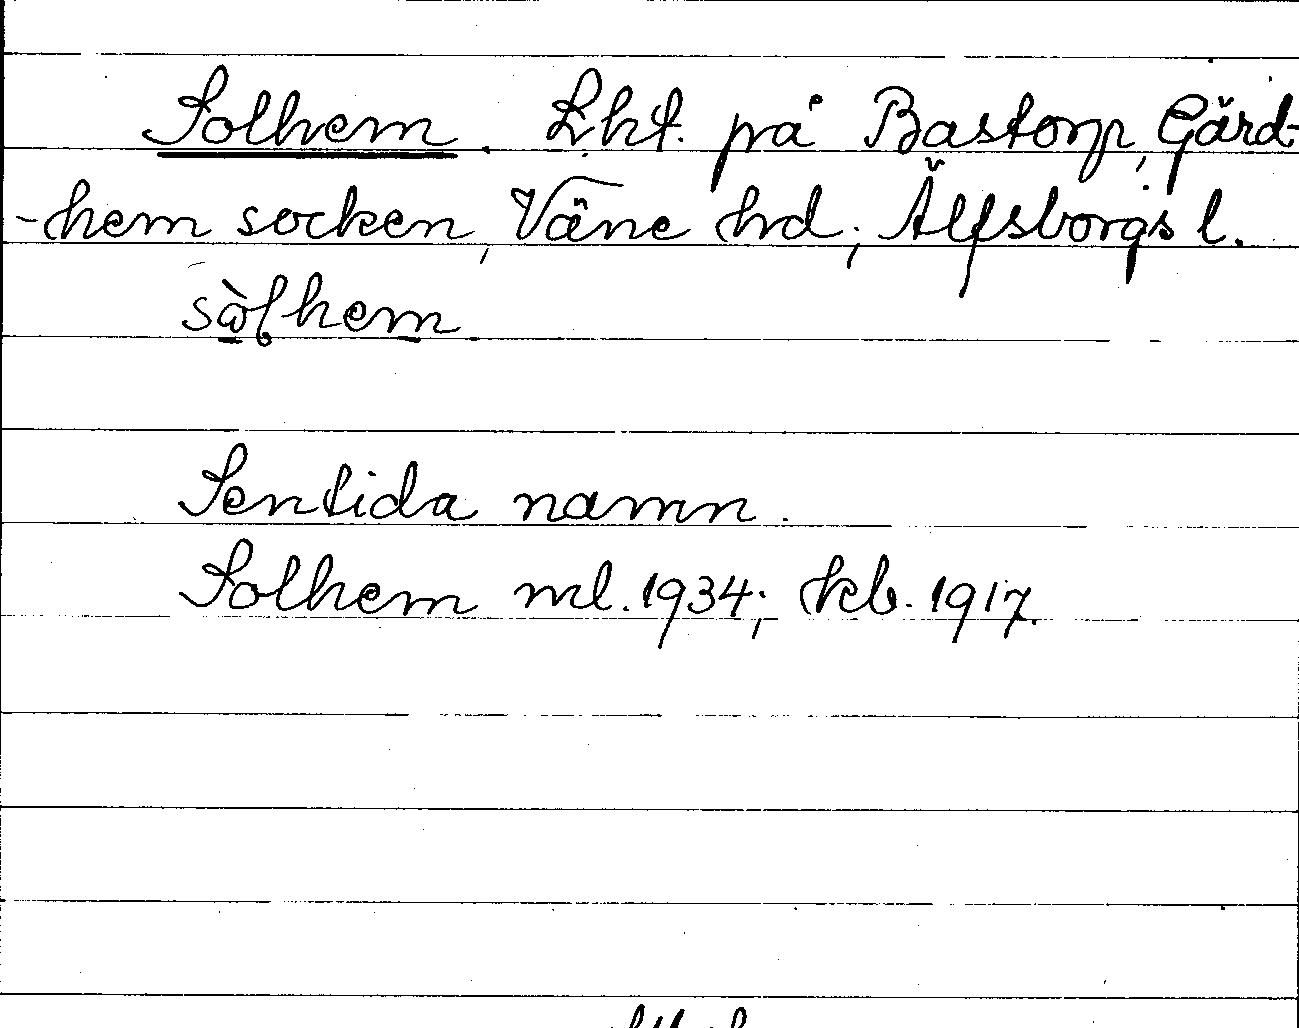 Solhem. Lht. på Bastorp, Gärd-
-hem socken, Väne hd, Älfsborgs l.
Sentida namn.
Solhem ml. 1934; kb. 1917.